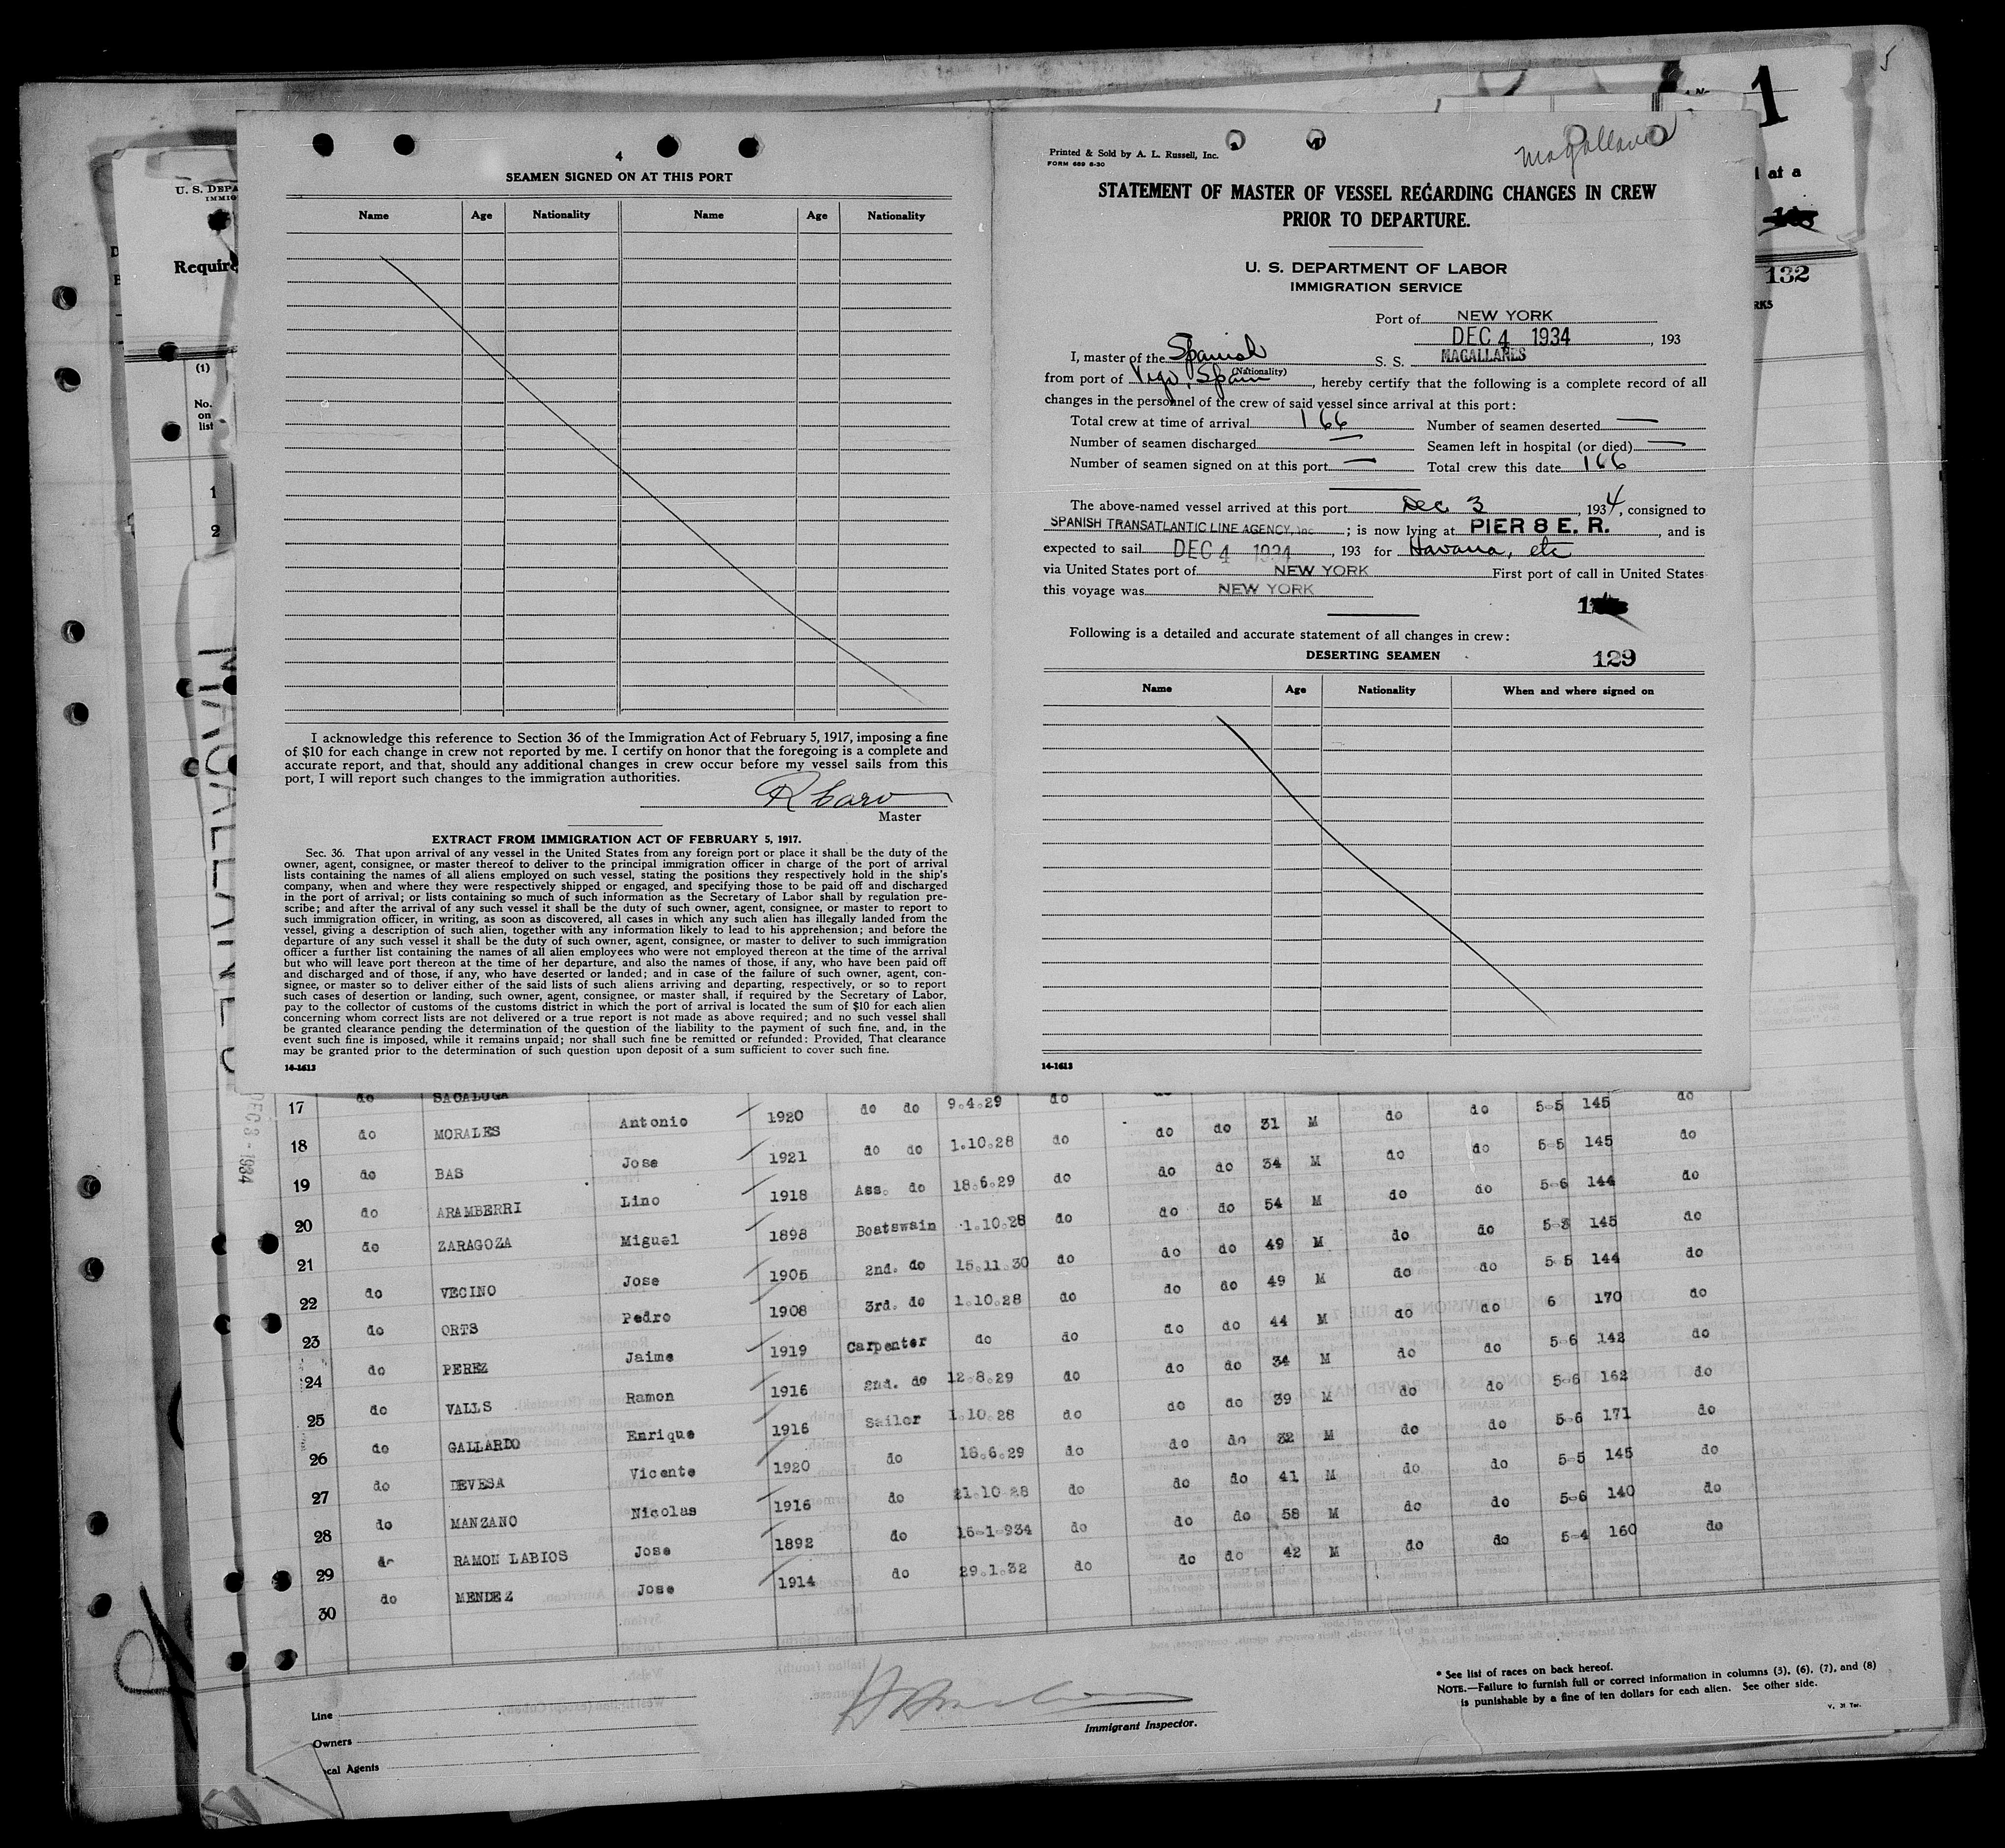 5
1
at a
132
U. S. DEPA
IMMIG
Require
(1)
No.
on
list
1
2
MAGALLANES
DEC 3 - 1934
4
SEAMEN SIGNED ON AT THIS PORT
Name Age Nationality Name Age Nationality
I acknowledge this reference to Section 36 of the Immigration Act of February 5, 1917, imposing a fine
of $10 for each change in crew not reported by me. I certify on honor that the foregoing is a complete and
accurate report, and that, should any additional changes in crew occur before my vessel sails from this
port, I will report such changes to the immigration authorities.
R Caro
Master
EXTRACT FROM IMMIGRATION ACT OF FEBRUARY 5, 1917.
Sec. 36. That upon arrival of any vessel in the United States from any foreign port or place it shall be the duty of the
owner, agent, consignee, or master thereof to deliver to the principal immigration officer in charge of the port of arrival
lists containing the names of all aliens employed on such vessel, stating the positions they respectively hold in the ship's
company, when and where they were respectively shipped or engaged, and specifying those to be paid off and discharged
in the port of arrival; or lists containing so much of such information as the Secretary of Labor shall by regulation pre-
scribe; and after the arrival of any such vessel it shall be the duty of such owner, agent, consignee, or master to report to
such immigration officer, in writing, as soon as discovered, all cases in which any such alien has illegally landed from the
vessel, giving a description of such alien, together with any information likely to lead to his apprehension; and before the
departure of any such vessel it shall be the duty of such owner, agent, consignee, or master to deliver to such immigration
officer a further list containing the names of all alien employees who were not employed thereon at the time of the arrival
but who will leave port thereon at the time of her departure, and also the names of those, if any, who have been paid off
and discharged and of those, if any, who have deserted or landed; and in case of the failure of such owner, agent, con-
signee, or master so to deliver either of the said lists of such aliens arriving and departing, respectively, or so to report
such cases of desertion or landing, such owner, agent, consignee, or master shall, if required by the Secretary of Labor,
pay to the collector of customs of the customs district in which the port of arrival is located the sum of $10 for each alien
concerning whom correct lists are not delivered or a true report is not made as above required; and no such vessel shall
be granted clearance pending the determination of the question of the liability to the payment of such fine, and, in the
event such fine is imposed, while it remains unpaid; nor shall such fine be remitted or refunded: Provided, That clearance
may be granted prior to the determination of such question upon deposit of a sum sufficient to cover such fine.
14-1613
Magallanes
Printed & Sold by A. L. Russell, Inc.
FORM 689 6-30
STATEMENT OF MASTER OF VESSEL REGARDING CHANGES IN CREW
PRIOR TO DEPARTURE.
U. S. DEPARTMENT OF LABOR
IMMIGRATION SERVICE
Port of NEW YORK
DEC 4 1934, 193
I, master of the Spanish S. S. MAGALLANES
(Nationality)
from port of Vigo, Spain, hereby certify that the following is a complete record of all
changes in the personnel of the crew of said vessel since arrival at this port:
Total crew at time of arrival 166 Number of seamen deserted —
Number of seamen discharged — Seamen left in hospital (or died) —
Number of seamen signed on at this port — Total crew this date 166
The above-named vessel arrived at this port Dec 3, 1934, consigned to
SPANISH TRANSATLANTIC LINE AGENCY, Inc; is now lying at PIER 8 E. R., and is
expected to sail DEC 4 1934, 193 for Havana, etc
via United States port of NEW YORK First port of call in United States
this voyage was NEW YORK
Following is a detailed and accurate statement of all changes in crew:
DESERTING SEAMEN
129
Name Age Nationality When and where signed on
14-1613
17 do SACALUGA Antonio 1920 do do 9.4.29 do do do 31 M do do 5-5 145 do
18 do MORALES Jose 1921 do do 1.10.28 do do do 34 M do do 5-5 145 do
19 do BAS Lino 1918 Ass. do 18.6.29 do do do 54 M do do 5-6 144 do
20 do ARAMBERRI Miguel 1898 Boatswain 1.10.28 do do do 49 M do do 5-3 145 do
21 do ZARAGOZA Jose 1905 2nd. do 15.11.30 do do do 49 M do do 5 5 144 do
22 do VECINO Pedro 1908 3rd. do 1.10.28 do do do 44 M do do 6 170 do
23 do ORTS Jaime 1919 Carpenter do do do do 34 M do do 5-6 142 do
24 do PEREZ Ramon 1916 2nd. do 12.8.29 do do do 39 M do do 5-6 162 do
25 do VALLS Enrique 1916 Sailor 1.10.28 do do do 32 M do do 5-6 171 do
26 do GALLARDO Vicente 1920 do 18.6.29 do do do 41 M do do 5-5 145 do
27 do DEVESA Nicolas 1916 do 21.10.28 do do do 58 M do do 5-6 140 do
28 do MANZANO Jose 1892 do 16-1-934 do do do 42 M do do 5-4 160 do
29 do RAMON LABIOS Jose 1914 do 29.1.32 do
30 do MENDEZ
Line
Owners
cal Agents
Immigrant Inspector.
* See list of races on back hereof.
NOTE.—Failure to furnish full or correct information in columns (3), (6), (7), and (8)
is punishable by a fine of ten dollars for each alien. See other side.